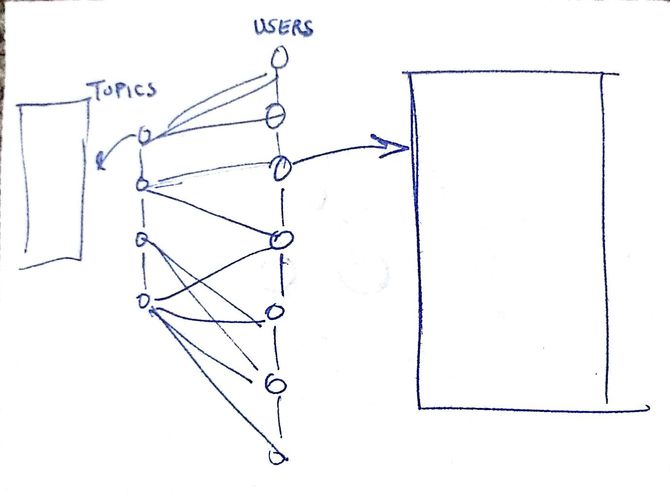 USERS
TOPICS